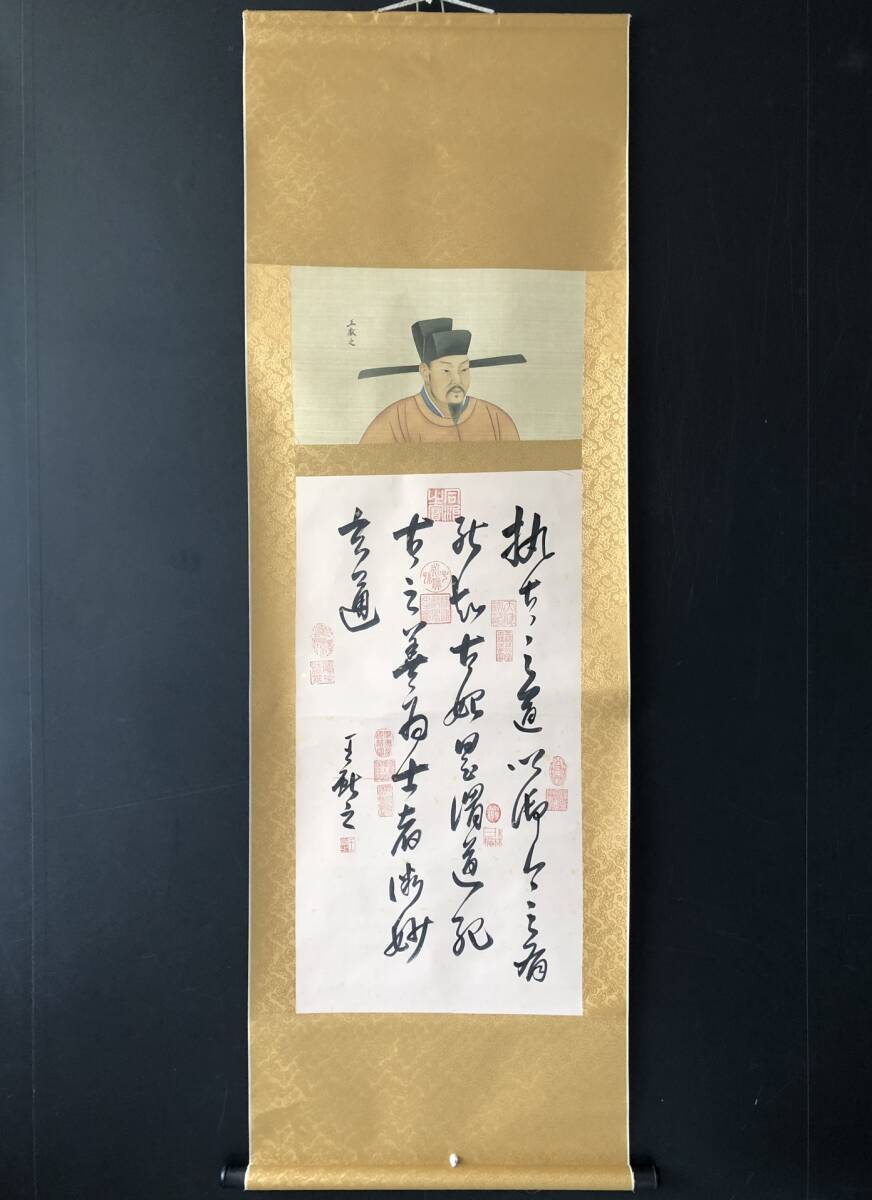 王献之
执古之道以御今之有
能知古始是谓道纪
古之善为士者微妙
玄通
王献之